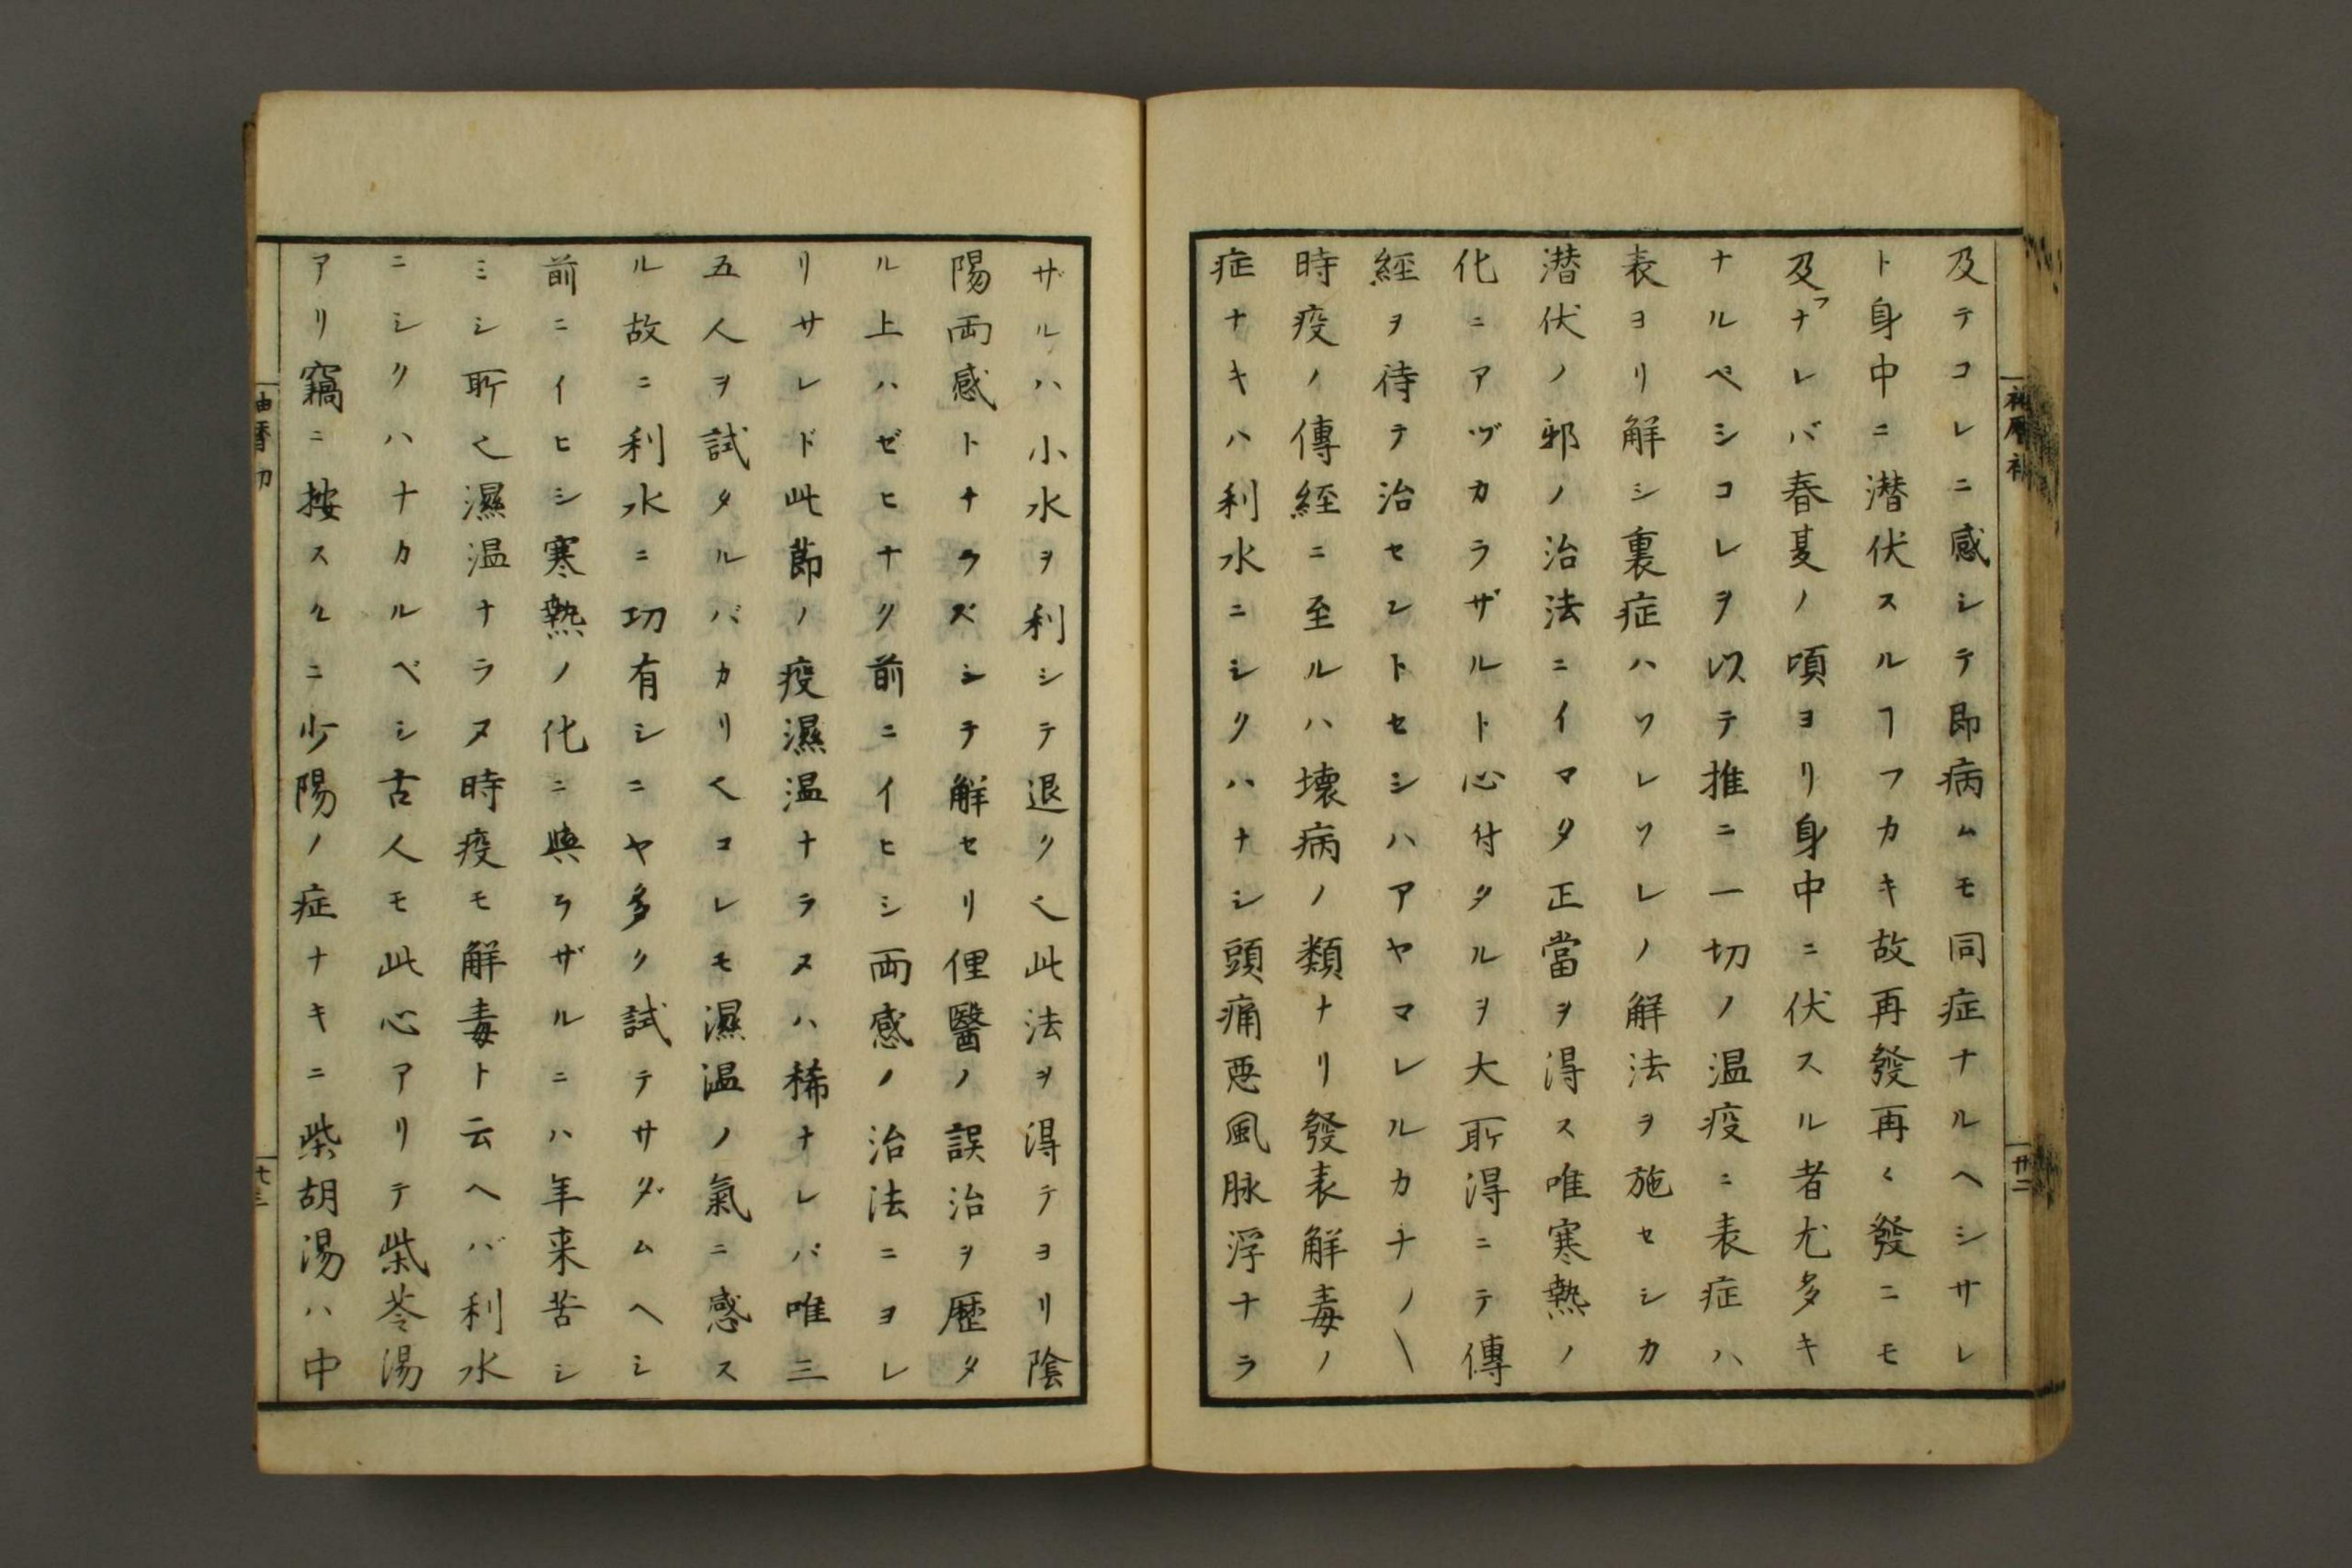 及テコレニ感シテ即病ムモ同症ナルヘシサレ
ト身中ニ潜伏スルヿフカキ故再發再〻發ニモ
及フナレバ春夏ノ頃ヨリ身中ニ伏スル者尤多キ
ナルベシコレヲ以テ推ニ一切ノ温疫ニ表症ハ
表ヨリ解シ裏症ハソレソレノ解法ヲ施セシカ
潜伏ノ邪ノ治法ニイマタ正當ヲ得ス唯寒熱ノ
化ニアヅカラザルト心付タルヲ大所得ニテ傳
經ヲ待テ治セントセシハアヤマレルカナノ\
時疫ノ傳經ニ至ルハ壊病ノ類ナリ發表解毒ノ
症ナキハ利水ニシクハナシ頭痛悪風脉浮ナラ
廿二
ザルハ小水ヲ利シテ退ク〱此法ヲ得テヨリ陰
陽両感トナラズシテ解セリ俚醫ノ誤治ヲ歴タ
ル上ハゼヒナク前ニイヒシ両感ノ治法ニヨレ
リサレド此節ノ疫濕温ナラヌハ稀ナレバ唯三
五人ヲ試タルバカリ〱コレモ濕温ノ氣ニ感ス
ル故ニ利水ニ功有シニヤ多ク試テサダムヘシ
前ニイヒシ寒熱ノ化ニ與ラザルニハ年来苦シ
ミシ所〱濕温ナラヌ時疫モ解毒ト云ヘバ利水
ニシクハナカルベシ古人モ此心アリテ柴苓湯
アリ竊ニ按スルニ少陽ノ症ナキニ柴胡湯ハ中